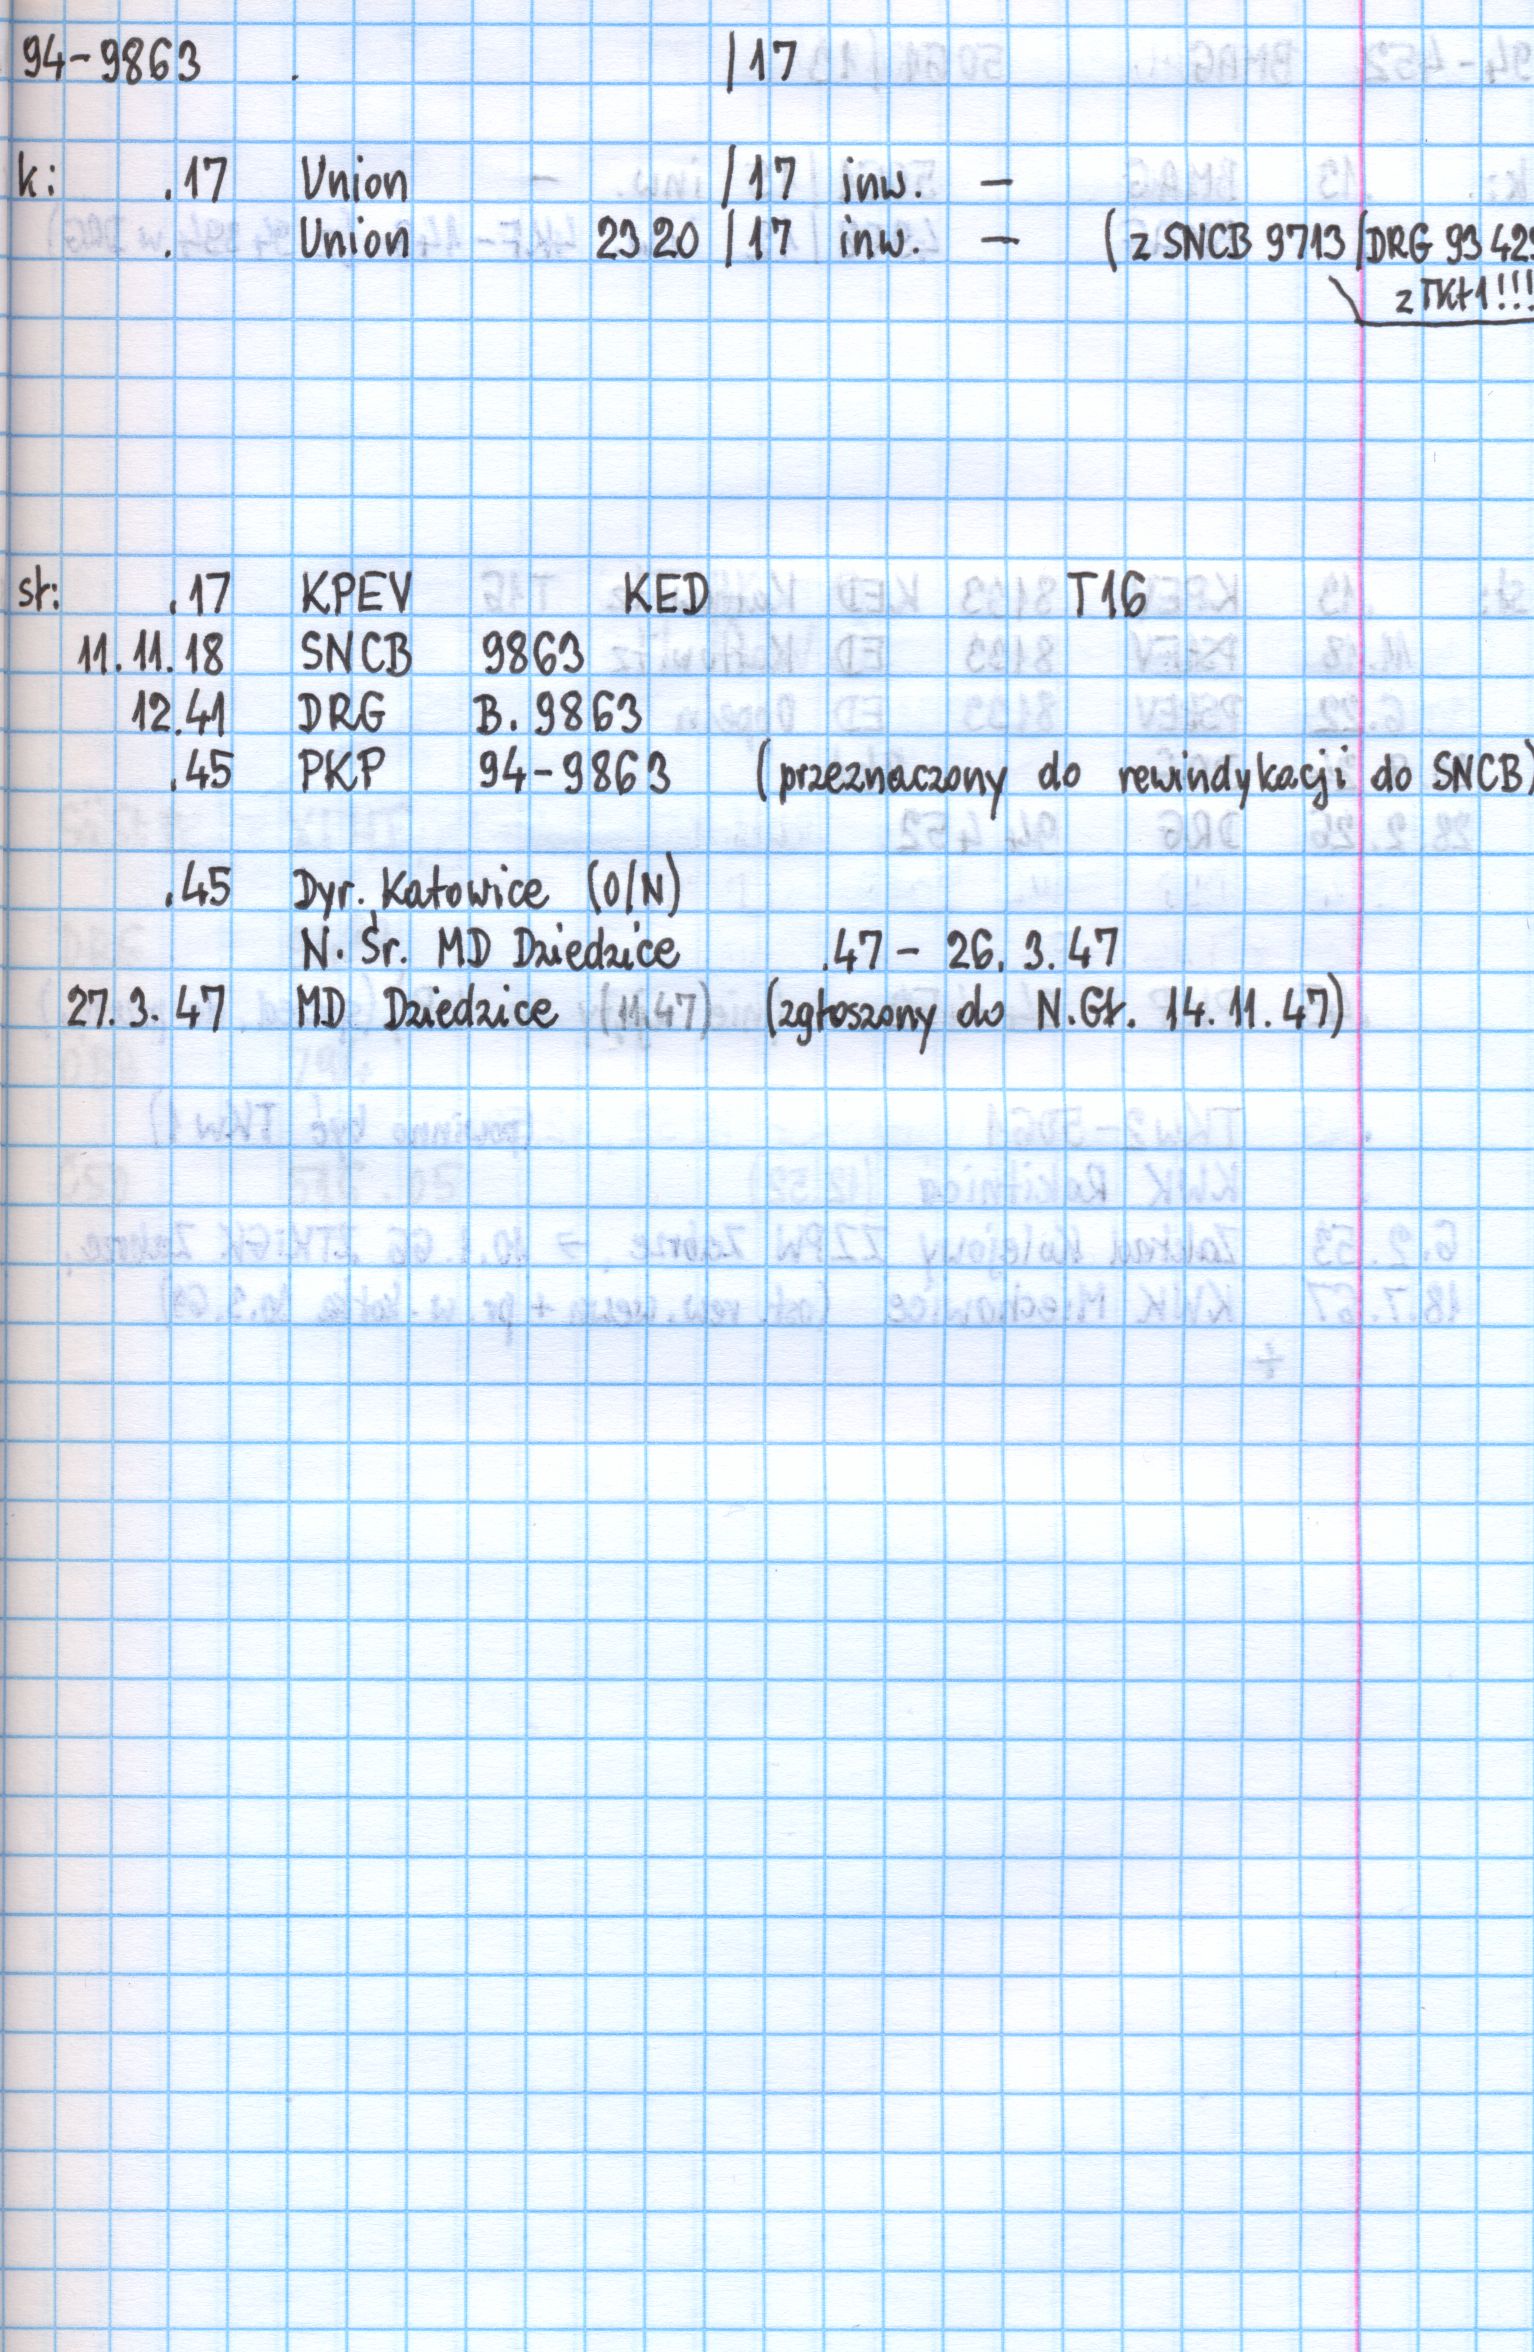 94-9863 . /17
k: .17 Union /17 inw. –
. Union 2320 /17 inw. – (z SNCB 9713/DRG 93 429
z TKt1!!!
st: .17 KPEV KED T16
11.11.18 SNCB 9863
12.41 DRG B.9863
.45 PKP 94-9863 (przeznaczony do rewindykacji do SNCB)
.45 Dyr. Katowice (O/N)
N. Śr. MD Dziedzice .47 – 26.3.47
27.3.47 MD Dziedzice (11.47) (zgłoszony do N.Gł. 14.11.47)